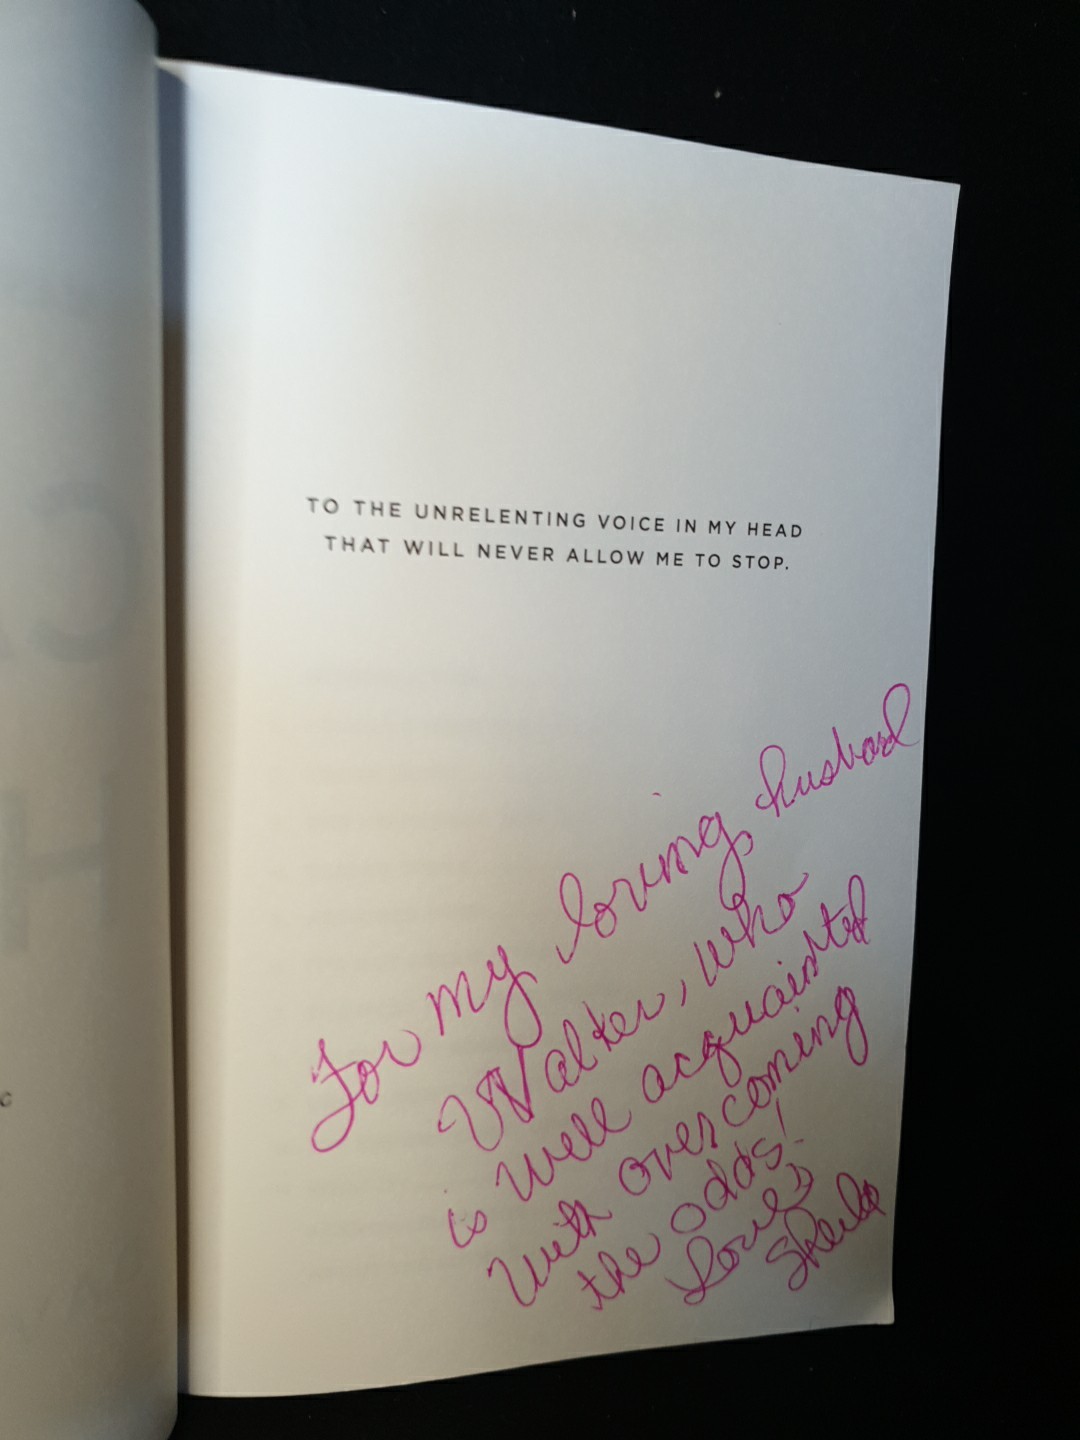 TO THE UNRELENTING VOICE IN MY HEAD
THAT WILL NEVER ALLOW ME TO STOP.
For my loving husband
Walker, who
is well acquainted
with overcoming
the odds!
Love,
Sheila
C